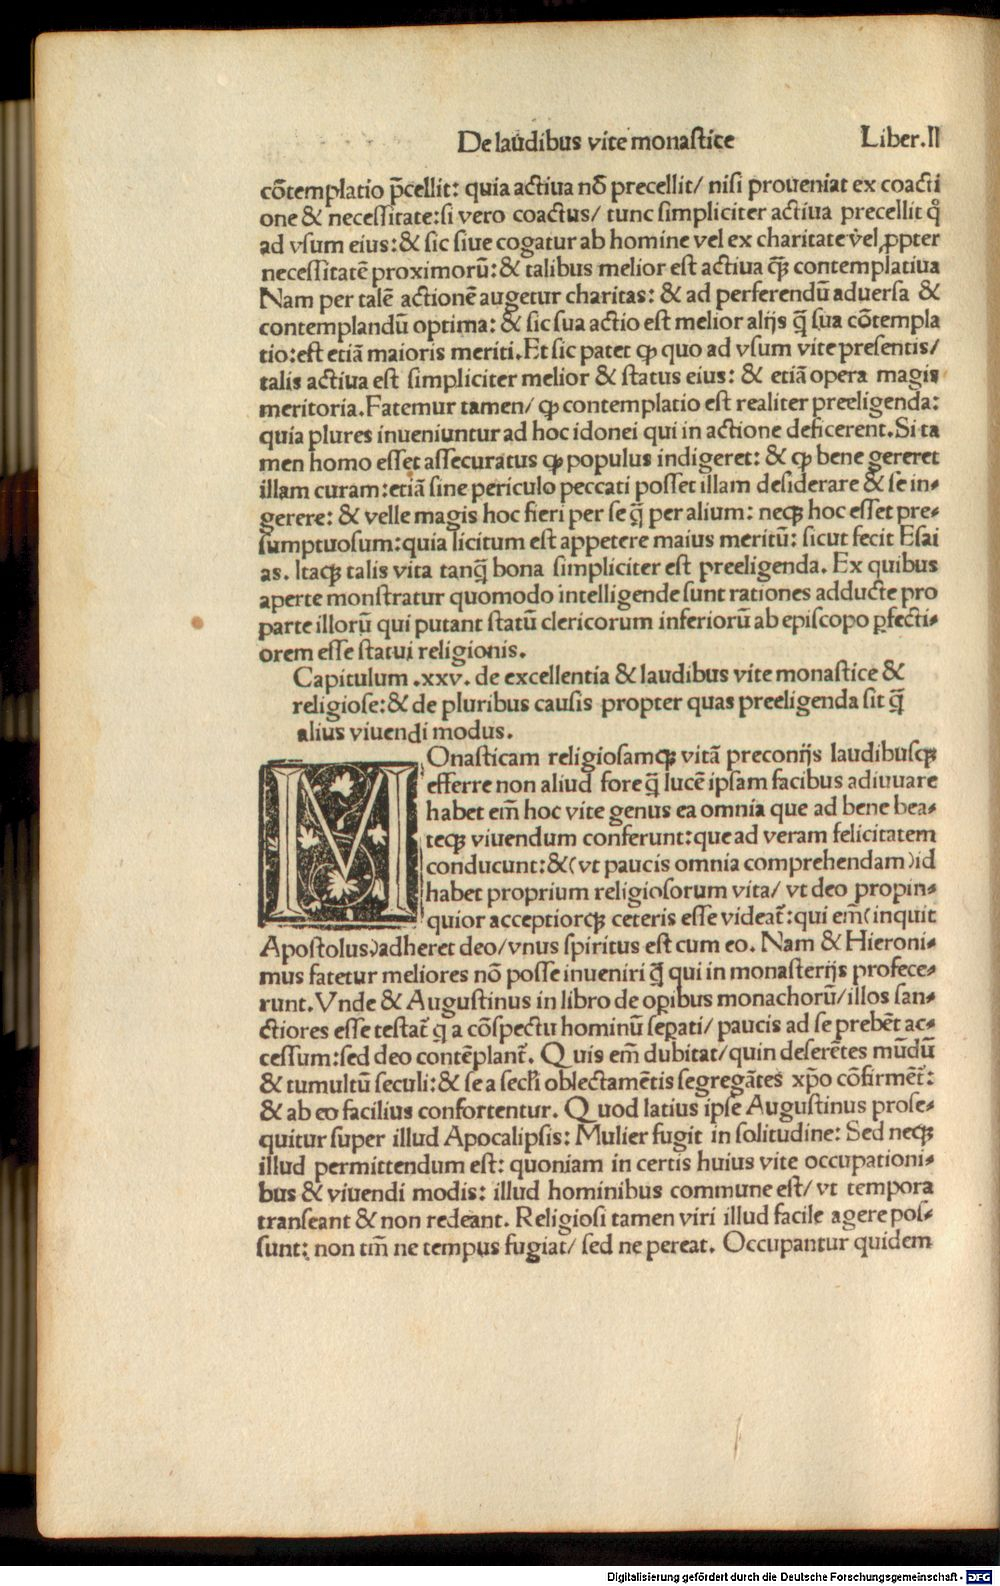 De laudibus vite monastice Liber.II
cõtemplatio p̃cellit: quia actiua nõ precellit/ nisi proueniat ex coacti
one & necessitate:si vero coactus/ tunc simpliciter actiua precellit qͦ
ad vsum eius:& sic siue cogatur ab homine vel ex charitate vel ꝓpter
necessitatẽ proximorũ:& talibus melior est actiua q̃ꝫ contemplatiua
Nam per talẽ actionẽ augetur charitas: & ad perferendũ aduersa &
contemplandũ optima: & sic sua actio est melior alijs q̃ sua cõtempla
tio:est etiã maioris meriti.Et sic patet ꝙ quo ad vsum vite presentis/
talis actiua est simpliciter melior & status eius: & etiã opera magis
meritoria.Fatemur tamen/ ꝙ contemplatio est realiter preeligenda:
quia plures inueniuntur ad hoc idonei qui in actione deficerent.Si ta
men homo esset assecuratus ꝙ populus indigeret: & ꝙ bene gereret
illam curam:etiã sine periculo peccati posset illam desiderare & se in⸗
gerere: & velle magis hoc fieri per se q̃ per alium: neqꝫ hoc esset pre⸗
sumptuosum:quia licitum est appetere maius meritũ: sicut fecit Esai
as. Itaqꝫ talis vita tanq̃ bona simpliciter est preeligenda. Ex quibus
aperte monstratur quomodo intelligende sunt rationes adducte pro
parte illorũ qui putant statũ clericorum inferiorũ ab episcopo ꝑfecti⸗
orem esse statui religionis.
Capitulum .xxv. de excellentia & laudibus vite monastice &
religiose:& de pluribus causis propter quas preeligenda sit q̃
alius viuendi modus.
MOnasticam religiosamqꝫ vitã preconijs laudibusqꝫ
efferre non aliud fore q̃ lucẽ ipsam facibus adiuuare
habet em̃ hoc vite genus ea omnia que ad bene bea⸗
teqꝫ viuendum conferunt:que ad veram felicitatem
conducunt:&(vt paucis omnia comprehendam)id
habet proprium religiosorum vita/ vt deo propin⸗
quior acceptiorqꝫ ceteris esse videat̃:qui em̃(inquit
Apostolus)adheret deo/vnus spiritus est cum eo. Nam & Hieroni⸗
mus fatetur meliores nõ posse inueniri q̃ qui in monasterijs profece⸗
runt.Vnde & Augustinus in libro de oꝑibus monachorũ/illos san⸗
ctiores esse testat̃ q a cõspectu hominũ seꝑati/ paucis ad se prebẽt ac⸗
cessum:sed deo contẽplant̃. Q uis em̃ dubitat/quin deserẽtes mũdũ
& tumultũ seculi:& se a secl̃i oblectamẽtis segregãtes xp̃o cõfirmẽt̃:
& ab eo facilius confortentur. Q uod latius ipse Augustinus prose⸗
quitur super illud Apocalipsis: Mulier fugit in solitudine: Sed neqꝫ
illud permittendum est: quoniam in certis huius vite occupationi⸗
bus & viuendi modis: illud hominibus commune est/ vt tempora
transeant & non redeant. Religiosi tamen viri illud facile agere pos⸗
sunt: non tm̃ ne tempus fugiat/ sed ne pereat. Occupantur quidem
Digitalisierung gefördert durch die Deutsche Forschungsgemeinschaft - DFG